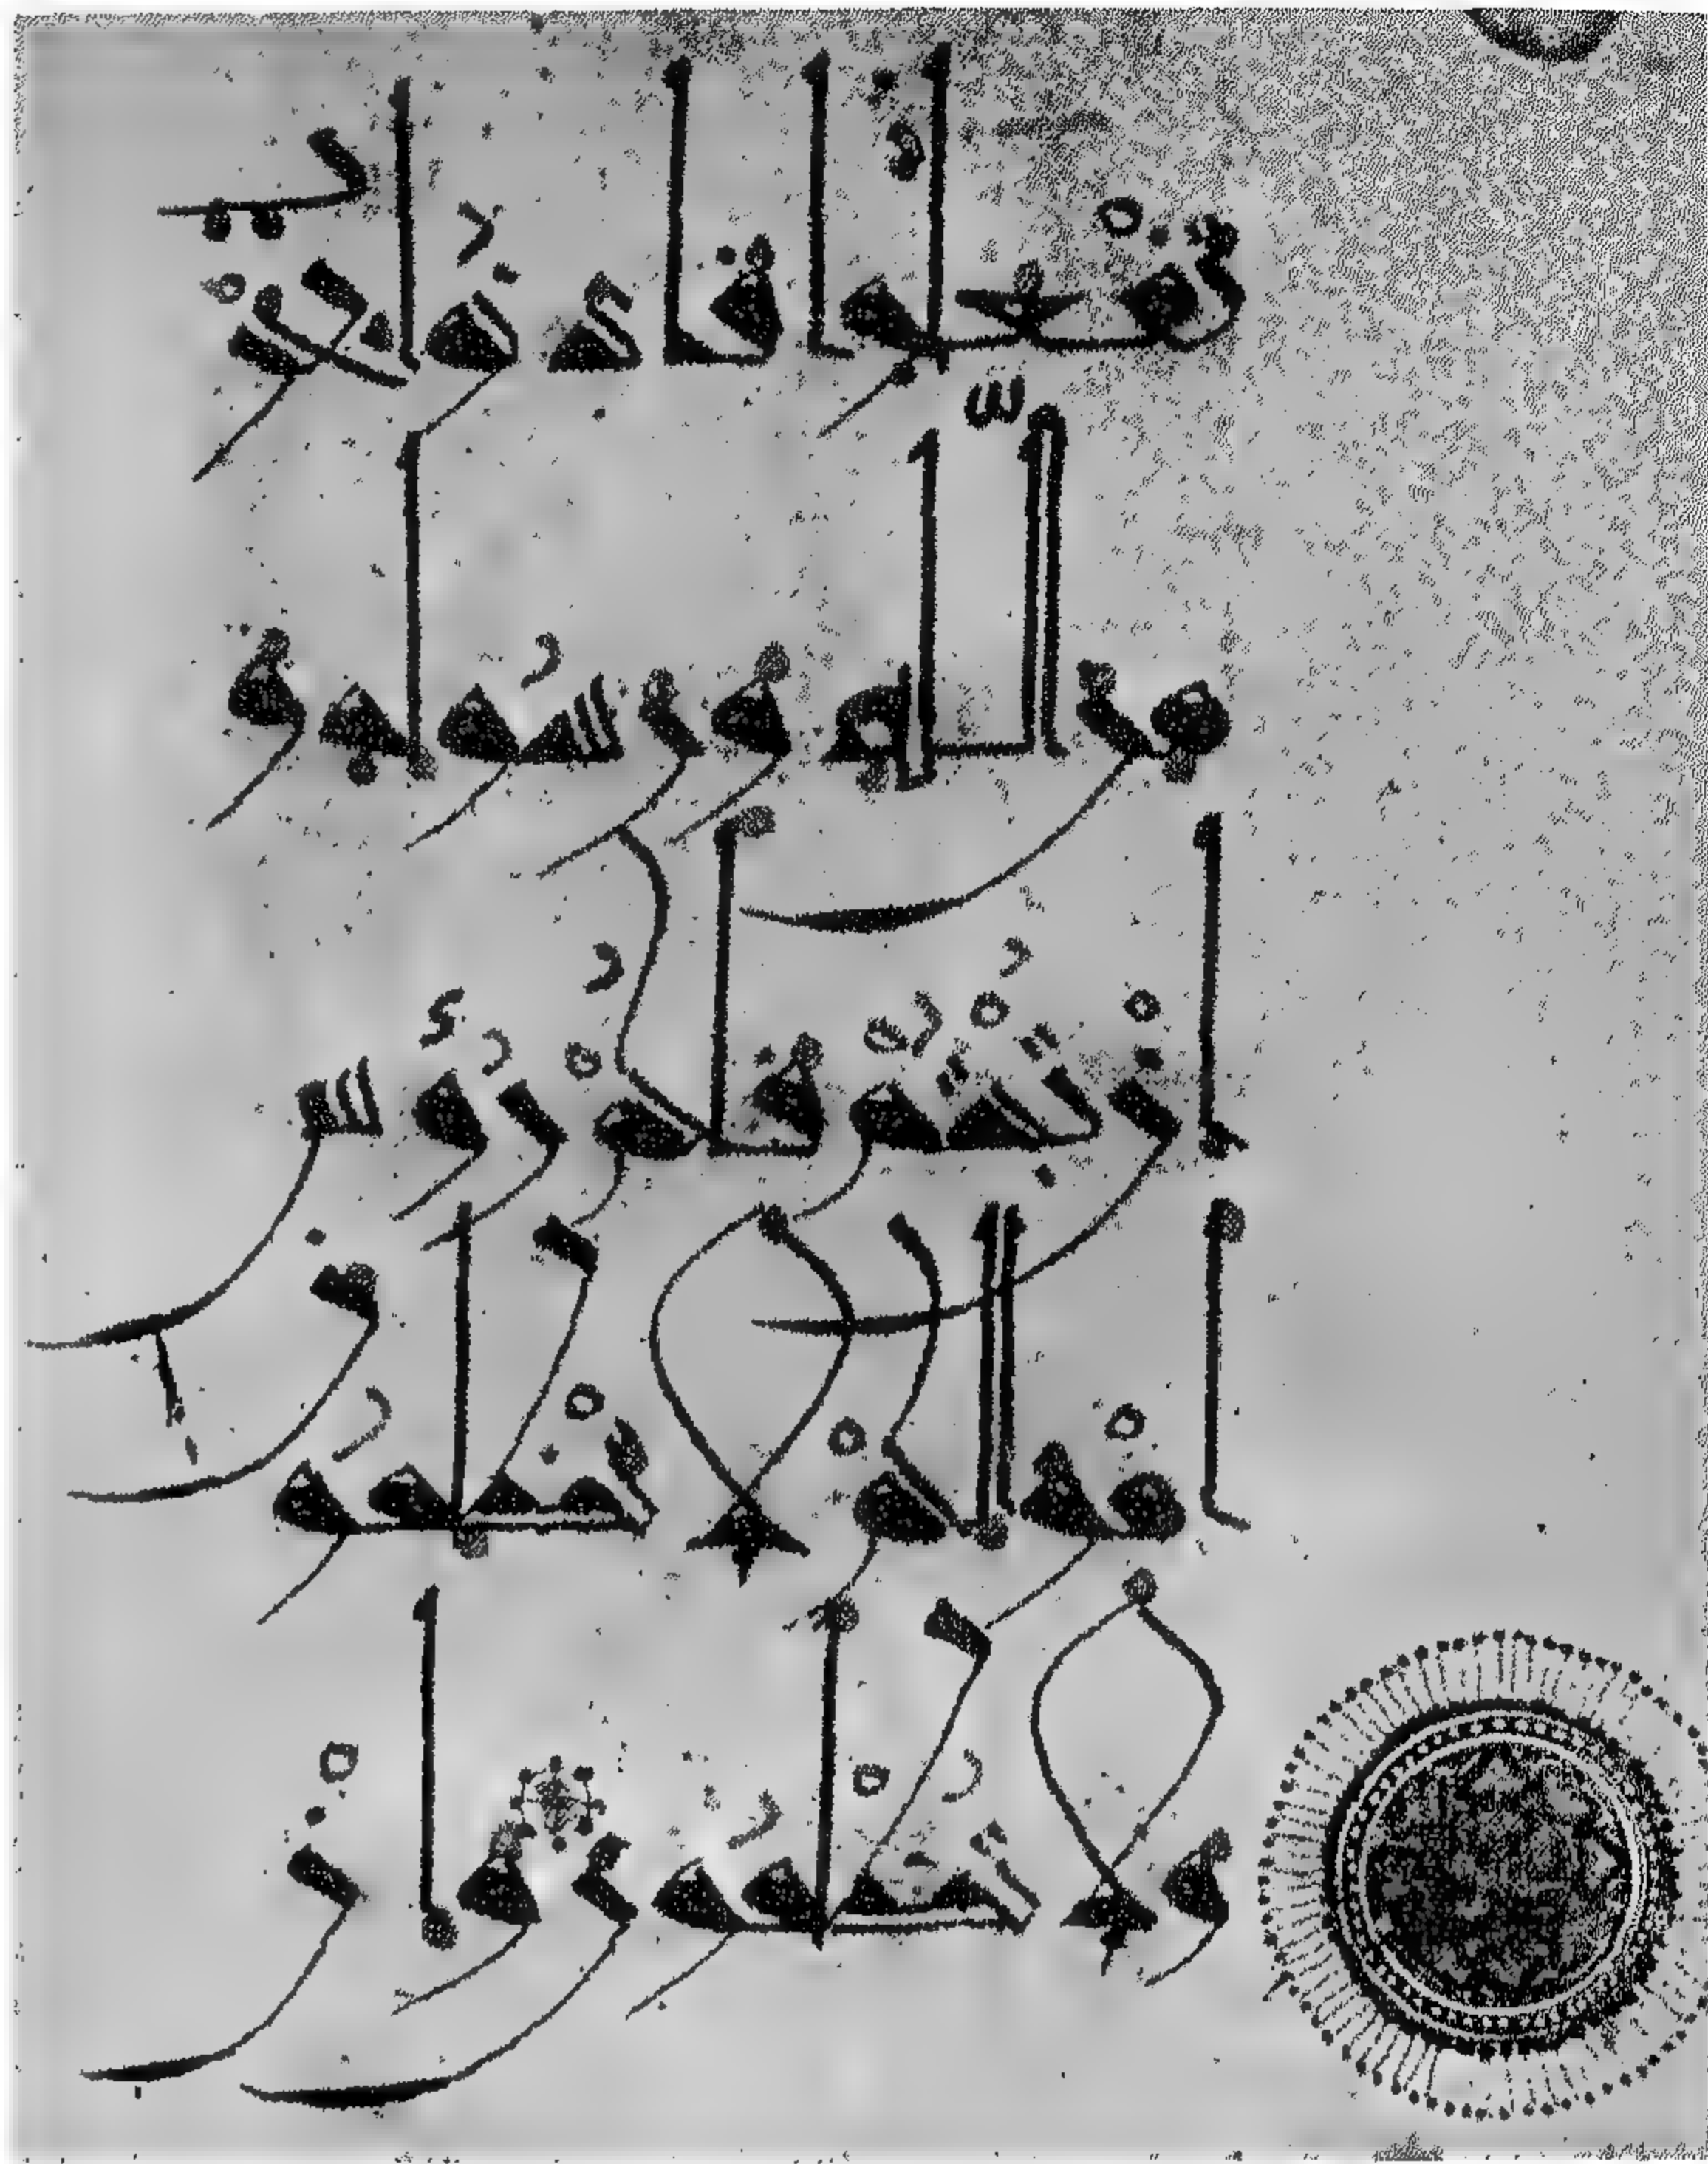 تفعلوا فاذنوا بحرب
من الله ورسوله و
ان تبتم فلكم روس
امولكم لا تظلمون
ولا تظلمون وان